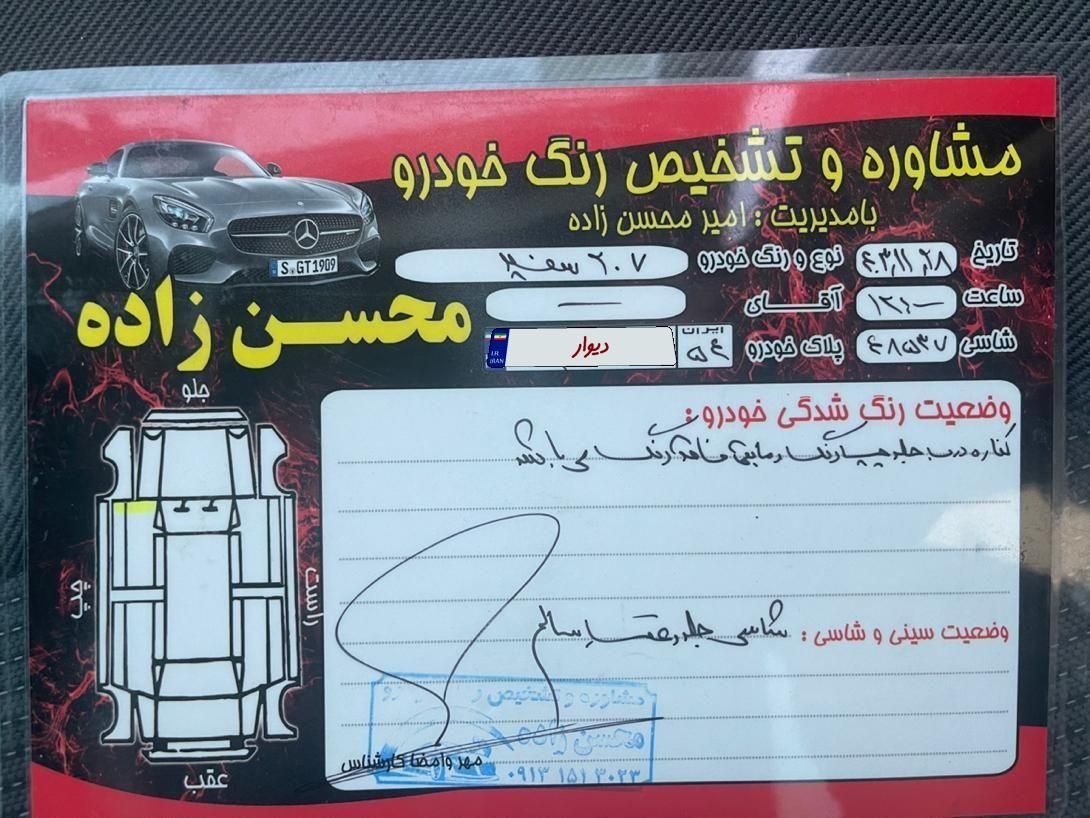 مشاوره و تشخیص رنگ خودرو
بامدیریت : امیر محسن زاده
تاریخ ۴۰۳,۱۱,۲۸ نوع و رنگ خودرو ۲۰۷ سفید
ساعت ۱۲:۰۰ آقــــای —
شاسی ۴۸۵۳۷ پلاک خودرو ایران ۵۴ دیوار I.R. IRAN
محسن زاده
S GT1909
جلو
چپ
راست
عقب
وضعیت رنگ شدگی خودرو :
کناره درب جلو چپ رنگ و مابقی فاقد رنگ می باشد
وضعیت سینی و شاسی : شاسی جلو و عقب سالم
مشاوره و تشخیص ر رو
محسن زاده
مهر وامضا کارشناس
۰۹۱۳ ۱۵۱ ۳۰۲۳